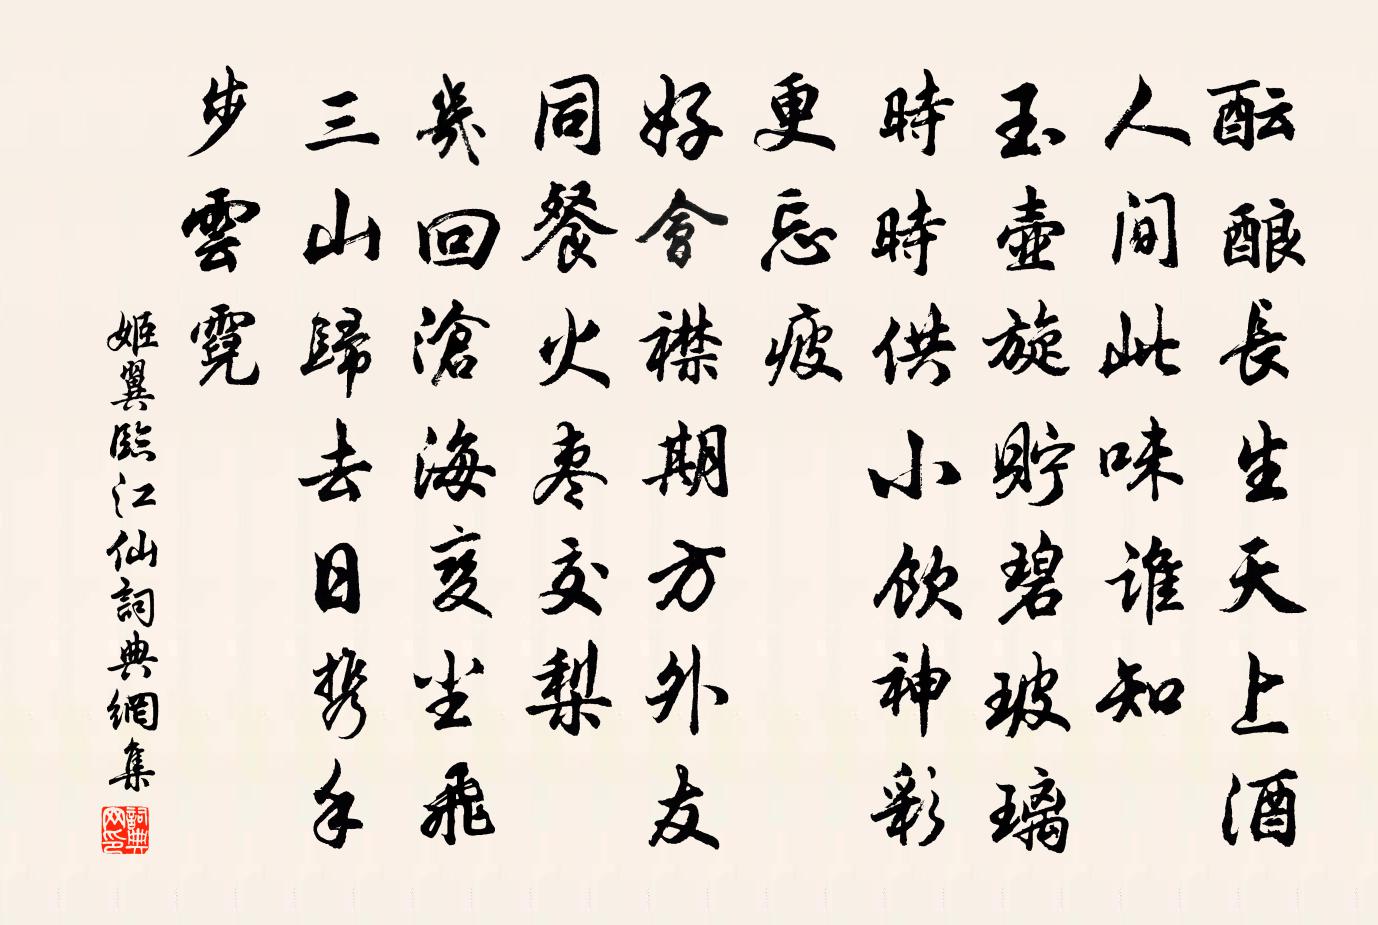 酝酿長生天上酒
人间此味谁知
玉壺旋貯碧玻璃
時時供小飲神彩
更忘疲
好會襟期方外友
同餐火枣交梨
幾回滄海变尘飛
三山歸去日携手
步雲霓
姬翼臨江仙詞典網集
詞典
网印